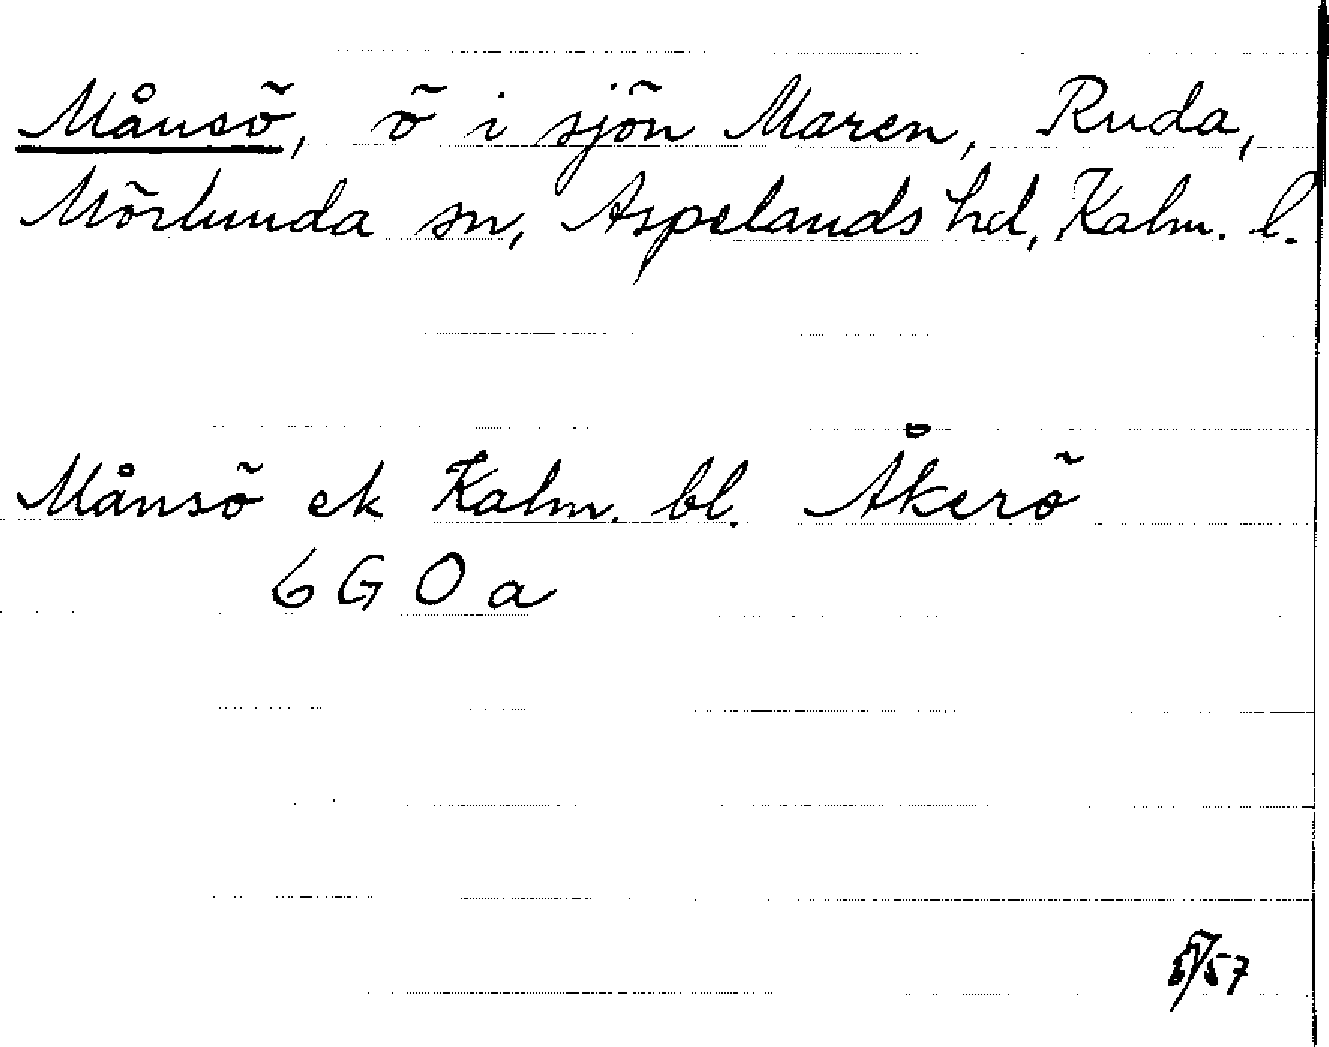 Månsö, ö i sjön Maren, Ruda,
Mörlunda sn, Aspelands hd, Kalm. l.
Månsö ek Kalm. bl. Åkerö
6 G 0 a